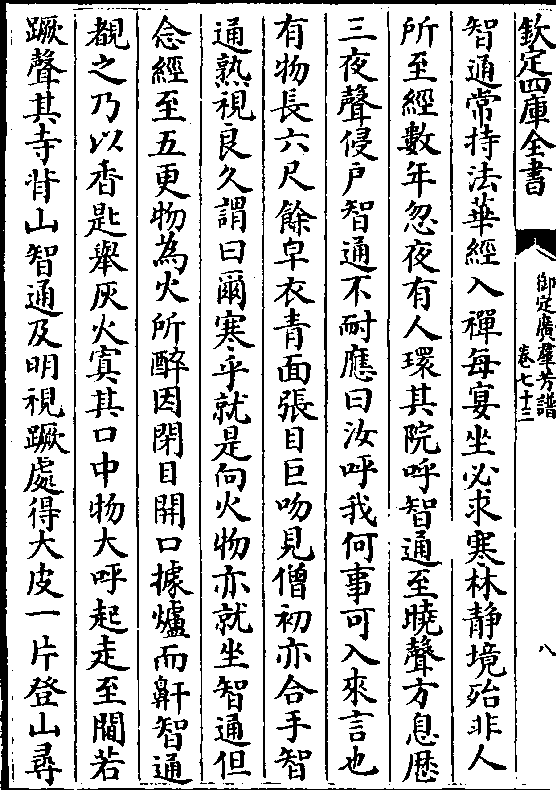 欽定四庫全書
御定廣羣芳譜
卷七十三
八
智通常持法華經入禪每宴坐必求寒林静境殆非人
所至經數年忽夜有人環其院呼智通至曉聲方息歴
三夜聲侵户智通不耐應曰汝呼我何事可入來言也
有物長六尺餘皁衣青面張目巨吻見僧初亦合手智
通熟視良久謂曰爾寒乎就是向火物亦就坐智通但
念經至五更物為火所醉因閉目開口據爐而鼾智通
覩之乃以香匙舉灰火寘其口中物大呼起走至閫若
蹶聲其寺背山智通及明視蹶處得大皮一片登山尋